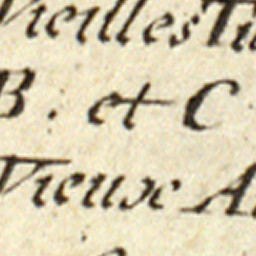 Vieilles Tu
B. et C
Vieux A